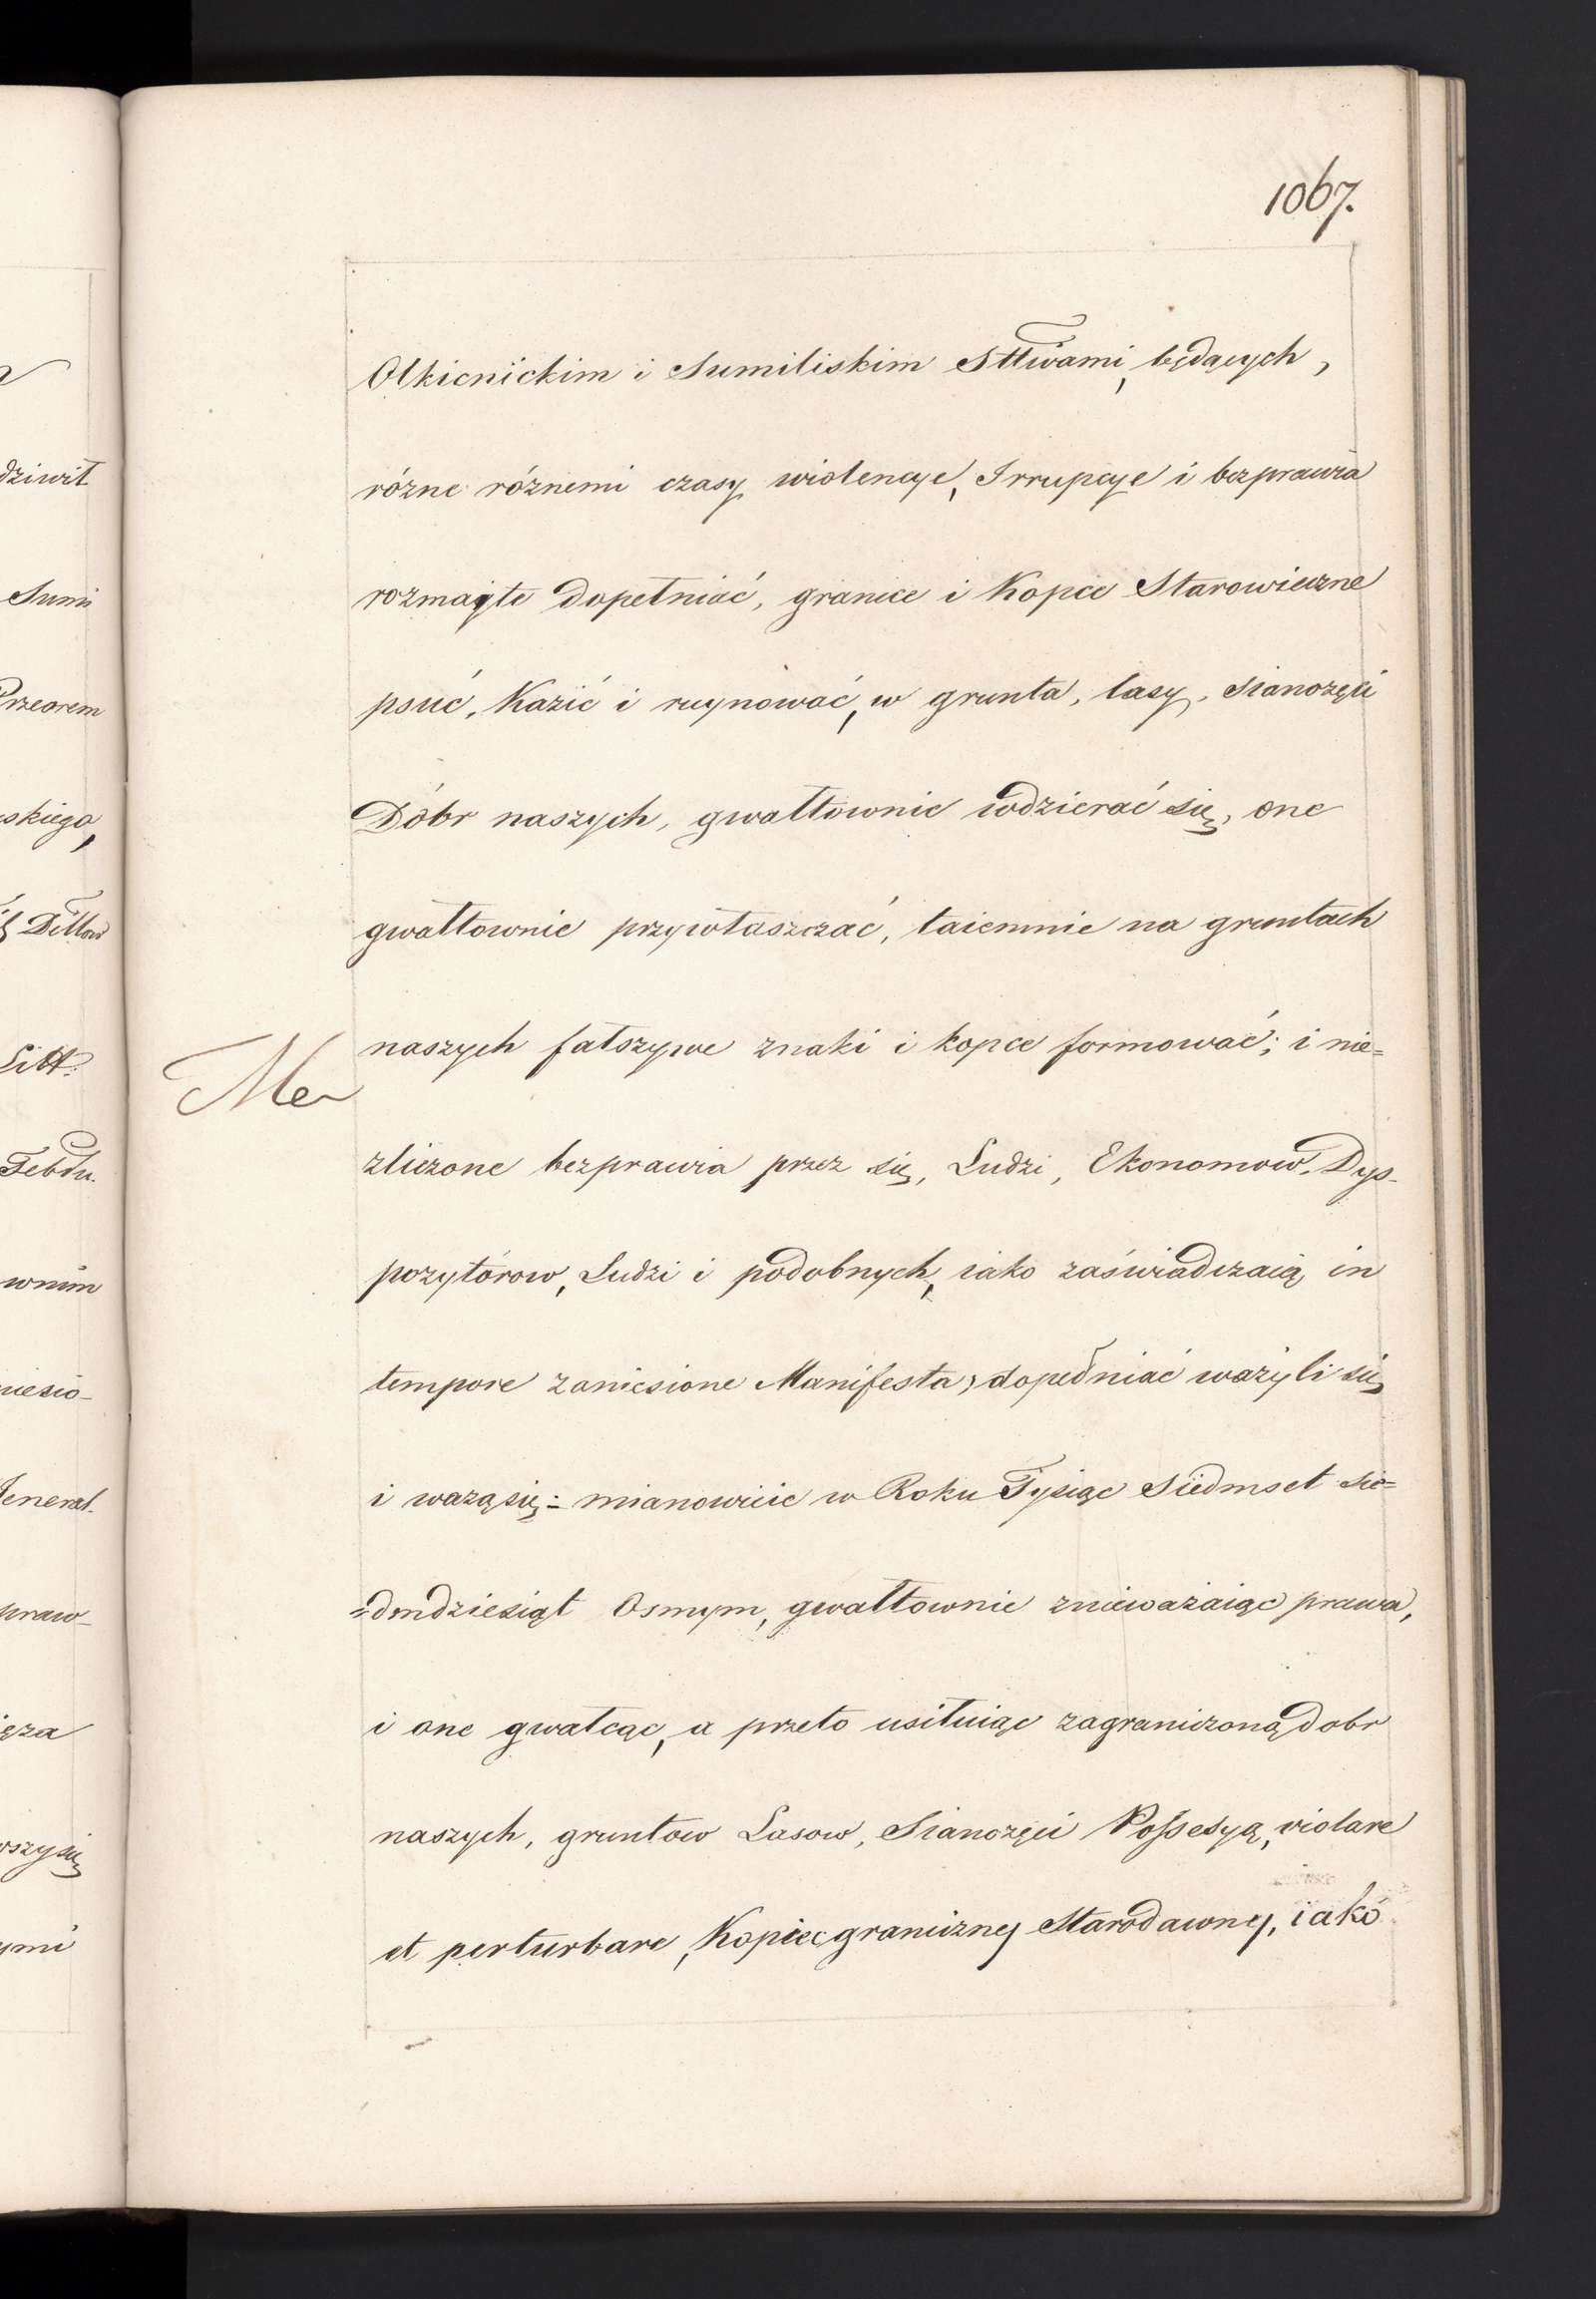 1067.
Olkienickim i Sumiliskim Sttwami, będących,
różne różnemi czasy wiolencye, Irrupcye i bezprawia
rozmayte dopełniać, granice i Kopce Starowieczne
psuć, Kazić i ruynować, w grunta, lasy, sianożęci
Dóbr naszych, gwałtownie wdzierać się, one
gwałtownie przywłaszczać, taiemnie na gruntach
naszych fałszywe znaki i kopce formować; i nie=
zliczone bezprawia przez się, Ludzi, Ekonomow, Dys-
pozytórow, Ludzi i podobnych, iako zaświadczaią in
tempore zaniesione Manifesta, dopełniać ważyli się
i ważą się:- mianowicie w Roku Tysiąc Siedmset sie=
=demdziesiąt Osmym, gwałtownie znieważaiąc prawa,
i one gwałcąc, a przeto usiłuiąc zagraniczoną dobr
naszych, gruntow Lasow, Sianożęci Possesyą, violare
et perturbare, Kopiec graniczney Starodawny, iako
dziwił
Sumi
Przeorem
skiego,
Litt.
wnim
niesio-
Jenerał.
praw-
ęza
wszy się
ymi